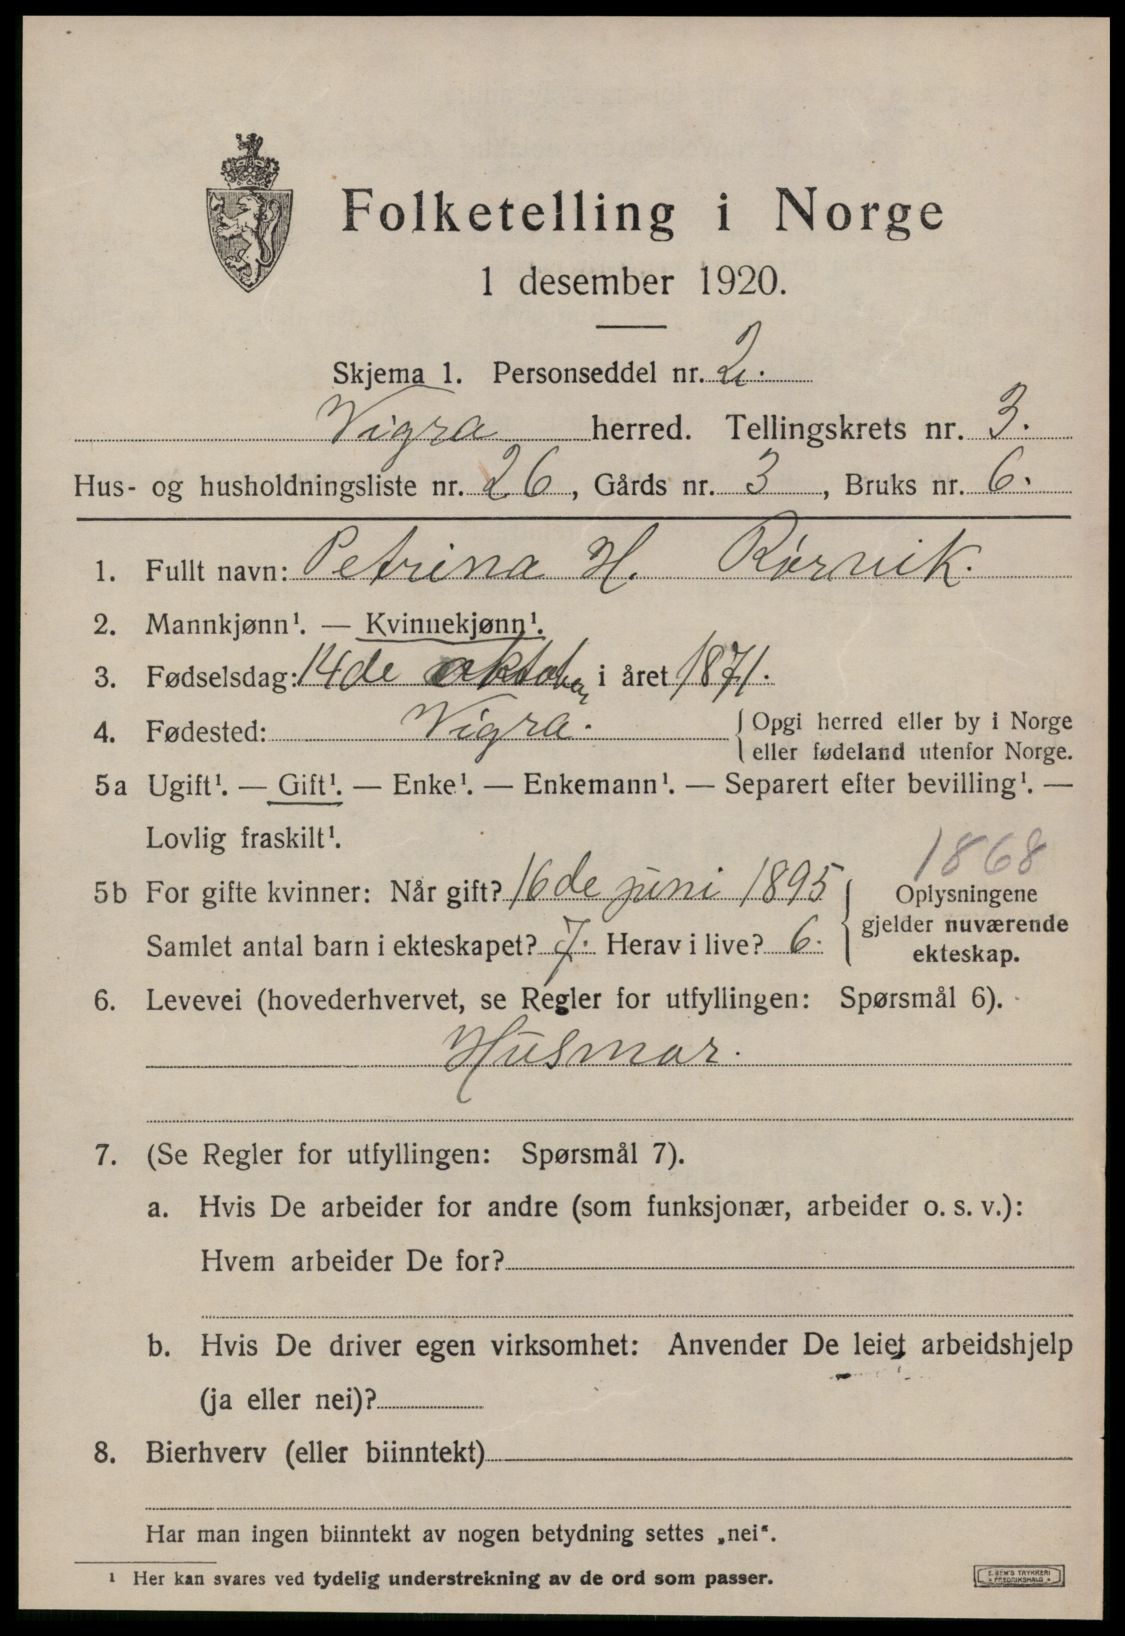 Folketelling i Norge
1 desember 1920.
Skjema 1. Personseddel nr. 2.
Vigra herred. Tellingskrets nr. 3.
Hus- og husholdningsliste nr. 26, Gårds nr. 3, Bruks nr. 6.
1. Fullt navn: Petrina H. Rørvik.
2. Mannkjønn¹. — Kvinnekjønn¹.
3. Fødselsdag: 14de oktober i året 1871.
4. Fødested: Vigra. { Opgi herred eller by i Norge
eller fødeland utenfor Norge.
5a Ugift¹. — Gift¹. — Enke¹. — Enkemann¹. — Separert efter bevilling¹. —
Lovlig fraskilt¹.
1868
5b For gifte kvinner: Når gift? 16de juni 1895 { Oplysningene
gjelder nuværende
Samlet antal barn i ekteskapet? 7. Herav i live? 6.
ekteskap.
6. Levevei (hovederhvervet, se Regler for utfyllingen: Spørsmål 6).
Husmor.
7. (Se Regler for utfyllingen: Spørsmål 7).
a. Hvis De arbeider for andre (som funksjonær, arbeider o. s. v.):
Hvem arbeider De for?
b. Hvis De driver egen virksomhet: Anvender De leiet arbeidshjelp
(ja eller nei)?
8. Bierhverv (eller biinntekt)
Har man ingen biinntekt av nogen betydning settes „nei“.
¹ Her kan svares ved tydelig understrekning av de ord som passer.
E. SEM'S TRYKKERI
FREDRIKSHALD